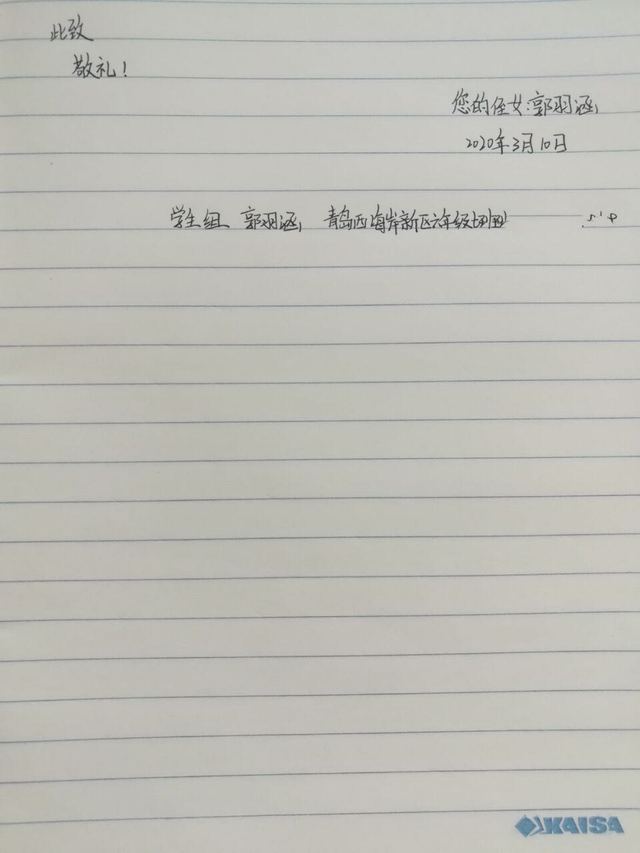 此致
敬礼!
您的侄女:郭羽涵
2020年3月10日
学生组 郭羽涵 青岛西海岸新区六年级
KAISA